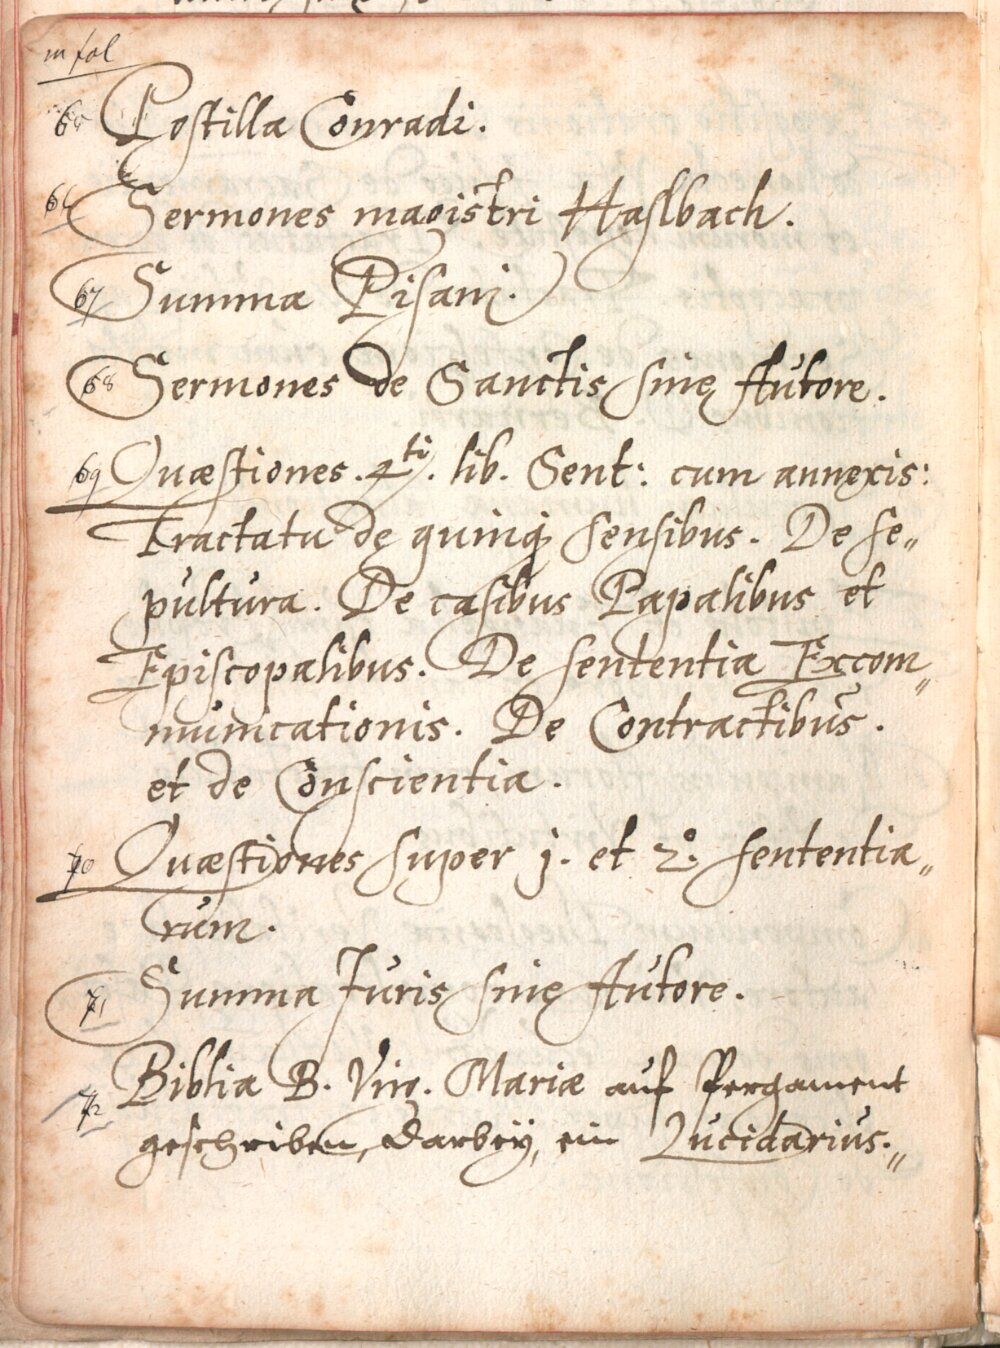 in fol
65 Postilla Conradi.
66 Sermones magistri Haslbach.
67 Summa Pisani.
68 Sermones de Sanctis sine Autore.
69 Quæstiones. 4ti. lib. Sent: cum annexis:
Tractatu de quinq sensibus. De se„
pultura. De casibus Papalibus et
Episcopalibus. De sententia Excom„
municationis. De Contractibus.
et de Conscientia.
70 Quæstiones super j. et 2º. sententia„
rum.
71 Summa Juris sine Autore.
72 Biblia B. Virg. Mariæ auf Pergament
geschriben, darbey, ein Lucidarius.„